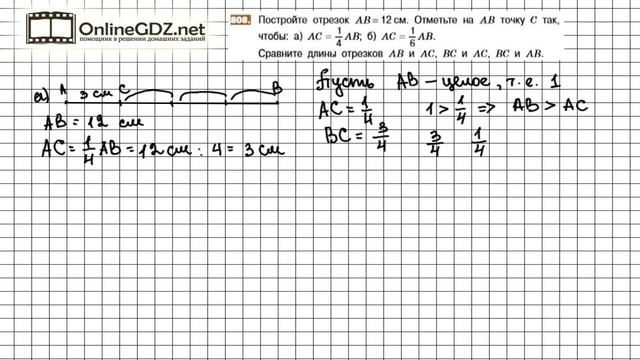 OnlineGDZ.net
помощник в решении домашних заданий
808. Постройте отрезок AB = 12 см. Отметьте на AB точку C так,
чтобы: а) AC = 1/4 AB; б) AC = 1/6 AB.
Сравните длины отрезков AB и AC, BC и AC, BC и AB.
а) A 3 см C B
AB = 12 см
AC = 1/4 AB = 12 см : 4 = 3 см
Пусть AB – целое, т.е. 1
AC = 1/4 1 > 1/4 => AB > AC
BC = 3/4 3/4 1/4